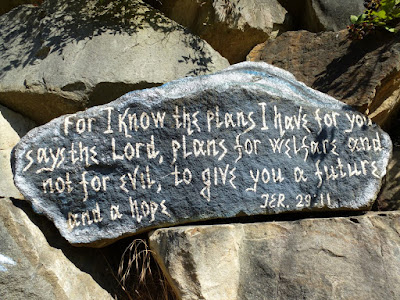 For I know the plans I have for you
says the Lord, plans for welfare and
not for evil, to give you a future
and a hope JER. 29:11